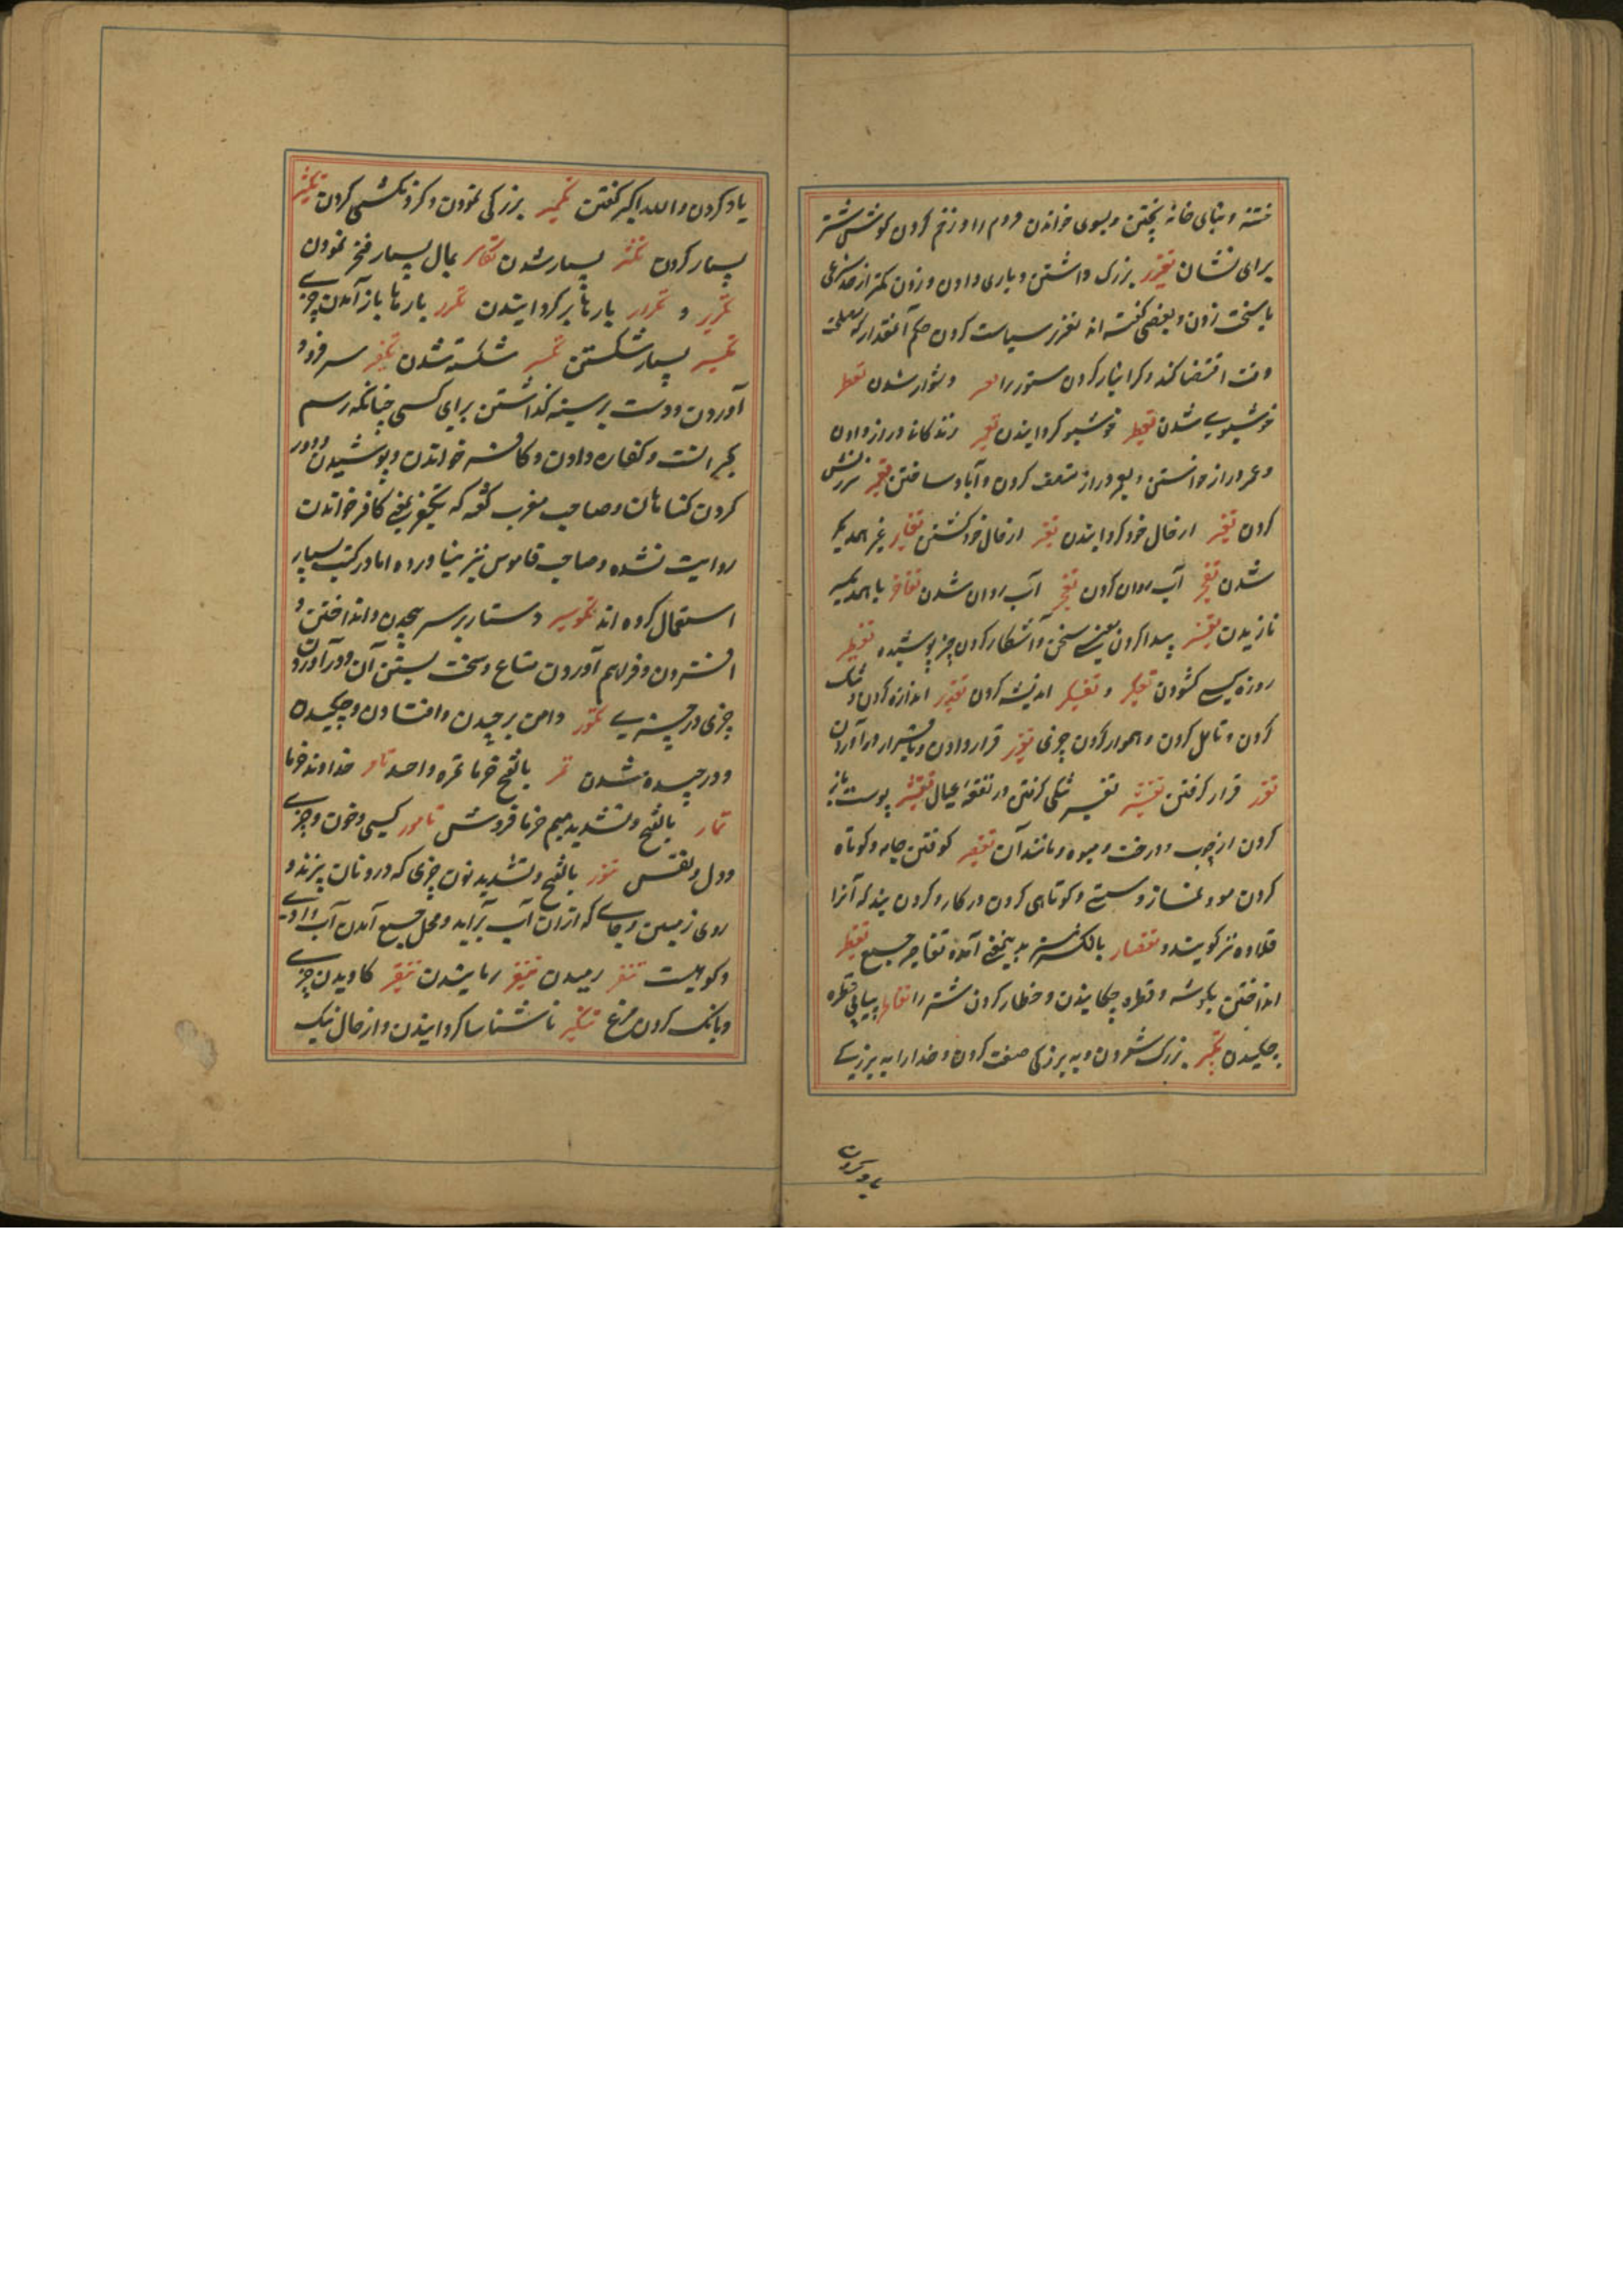 ختنه و بنای خانه پختن و بسوی خواندن مردم را و زخم کردن گوش شتر
برای نشان تعزیر بزرگ داشتن و یاری دادن و زدن کمتر از حد شرعی
یا سخت زدن و بعضی گفته اند تعزیر سیاست کردن حاکم آنقدار که مصلحت
وقت اقتضا کند و گرانبار کردن ستور را تعسر دشوار شدن تعطر
خوشبوی شدن تعطیر خوشبو گردانیدن تعمیر زندگانی دراز دادن
و عمر دراز خواستن و بعمر دراز متصف کردن و آباد ساختن تعییر سرزنش
کردن تغییر از حال خود گردانیدن تغیر از حال خود گشتن تغایر غیر همدیگر
شدن تفجیر آب روان کردن تفجر آب روان شدن تفاخر با همدیگر
نازیدن تفسیر پیدا کردن معنی سخن و آشکار کردن چیز پوشیده تفطیر
روزه کسی گشودن تفکر و تفکیر اندیشه کردن تقدیر اندازه کردن و تنگ
کردن و تامل کردن و هموار کردن چیزی تقریر قرار دادن و باقرار در آوردن
تقرر قرار گرفتن تقتیر تنگی گرفتن در نفقه عیال تقشیر پوست باز
کردن از چوب و درخت و میوه و مانند آن تقصیر کوفتن جامه و کوتاه
کردن مو و نماز و سستی و کوتاهی کردن در کار و گردن بند که آنرا
قلاده نیز گویند و تقصار بالکسر نیز بدین معنی آمده تقاصیر جمع تقطیر
انداختن بر پهلو و قطره چکانیدن و قطار کردن شتر را تقاطر پیاپی قطره
چکیدن تکبیر بزرگ شمردن و به بزرگی صفت کردن و خدا را به بزرگی
یاد کردن
یاد کردن و الله اکبر گفتن تکبر بزرگی نمودن و گردنکشی کردن تکثیر
بسیار کردن تکثر بسیار شدن تکاثر بمال بسیار فخر نمودن
تکریر و تکرار بارها برگردانیدن تکرر بارها باز آمدن چیزی
تکسیر بسیار شکستن تکسر شکسته شدن تکفیر سر فرود
آوردن و دست بر سینه گذاشتن برای کسی چنانکه رسم
عجم است و کفاره دادن و کافر خواندن و پوشیدن و دور
کردن گناهان و صاحب مغرب گفته که تکفیر بمعنی کافر خواندن
روایت نشده و صاحب قاموس نیز نیاورده اما در کتب بسیار
استعمال کرده اند تکویر دستار بر سر پیچیدن و انداختن و
افشردن و فراهم آوردن متاع و سخت بستن آن و در آوردن
چیزی در چیزی تکور دامن برچیدن و افتادن و چکیدن
و درچیده شدن تمر بالفتح خرما تمره واحد تامر خداوند خرما
تمار بالفتح و تشدید میم خرما فروش تامور کیسی و خون و چیزی
و دل و نفس تنور بالفتح و تشدید نون چیزی که در و نان پزند و
روی زمین و جای که از ان آب برآید و محل جمع آمدن آب وادی
و کوهیست تنفر رمیدن تنفیر رمانیدن تنقیر کاویدن چیزی
و بانگ کردن مرغ تنکیر ناشناسا گردانیدن و از حال نیک